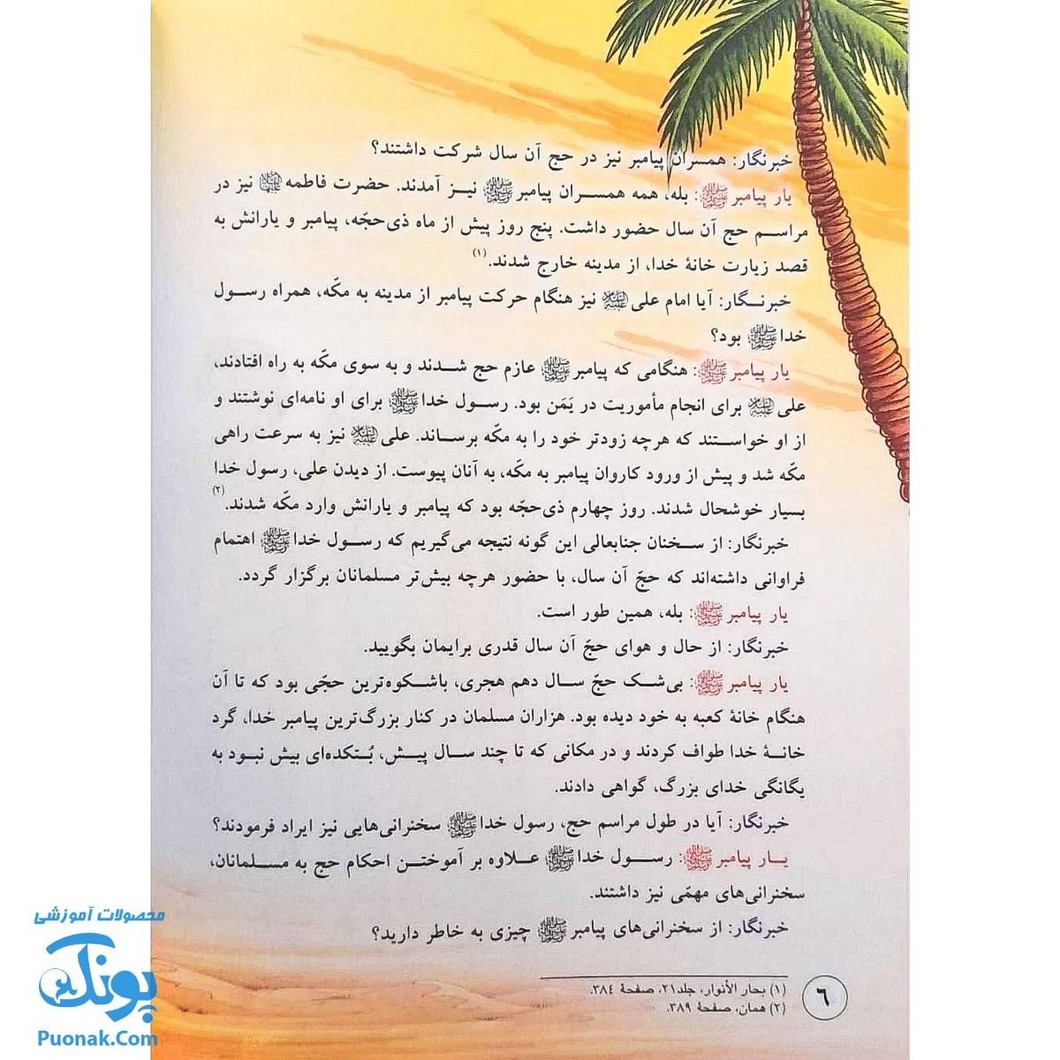 خبرنگار: همسران پیامبر نیز در حج آن سال شرکت داشتند؟
یار پیامبر ﷺ: بله، همه همســران پیامبر ﷺ نیــز آمدند. حضرت فاطمه علیها السلام نیز در
مراســم حج آن سال حضور داشت. پنج روز پیش از ماه ذی‌حجّه، پیامبر و یارانش به
قصد زیارت خانهٔ خدا، از مدینه خارج شدند.(۱)
خبرنــگار: آیا امام علی علیه السلام نیز هنگام حرکت پیامبر از مدینه به مکّه، همراه رســول
خدا ﷺ بود؟
یار پیامبر ﷺ: هنگامی که پیامبر ﷺ عازم حج شــدند و به سوی مکّه به راه افتادند،
علی علیه السلام برای انجام مأموریت در یَمَن بود. رســول خدا ﷺ برای او نامه‌ای نوشتند و
از او خواســتند که هرچه زودتر خود را به مکّه برساند. علی علیه السلام نیز به سرعت راهی
مکّه شد و پیش از ورود کاروان پیامبر به مکه، به آنان پیوست. از دیدن علی، رسول خدا
بسیار خوشحال شدند. روز چهارم ذی‌حجّه بود که پیامبر و یارانش وارد مکّه شدند.(۲)
خبرنگار: از ســخنان جنابعالی این گونه نتیجه می‌گیریم که رســول خدا ﷺ اهتمام
فراوانی داشته‌اند که حجّ آن سال، با حضور هرچه بیش‌تر مسلمانان برگزار گردد.
یار پیامبر ﷺ: بله، همین طور است.
خبرنگار: از حال و هوای حجّ آن سال قدری برایمان بگویید.
یار پیامبر ﷺ: بی‌شک حجّ ســال دهم هجری، باشــکوه‌ترین حجّی بود که تا آن
هنگام خانهٔ کعبه به خود دیده بود. هزاران مسلمان در کنار بزرگ‌ترین پیامبر خدا، گرد
خانــهٔ خدا طواف کردند و در مکانی که تا چند ســال پیــش، بُتکده‌ای بیش نبــود به
یگانگی خدای بزرگ، گواهی دادند.
خبرنگار: آیا در طول مراسم حج، رسول خدا ﷺ سخنرانی‌هایی نیز ایراد فرمودند؟
یــار پیامبر ﷺ: رســول خدا ﷺ علــاوه بر آموختــن احکام حج به مســلمانان،
سخنرانی‌های مهمّی نیز داشتند.
خبرنگار: از سخنرانی‌های پیامبر ﷺ چیزی به خاطر دارید؟
(۱) بحار الأنوار، جلد۲۱، صفحهٔ ۳۸٤.
(۲) همان، صفحهٔ ۳۸۹.
٦
محصولات آموزشی
پونک
Puonak.Com